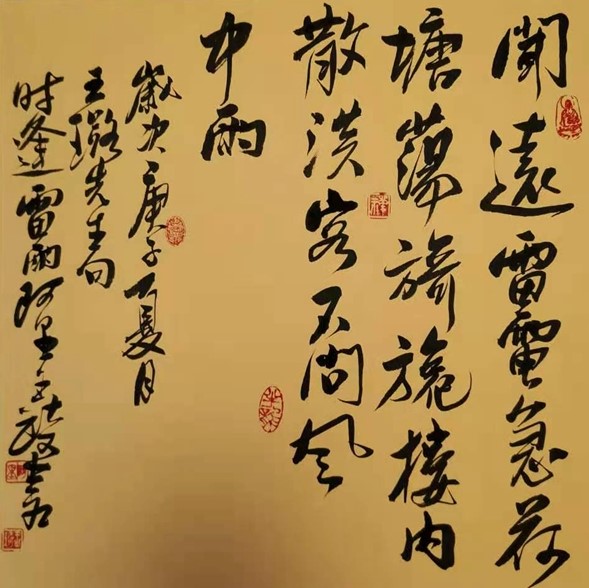 聞遠雷電急荷
塘蕩旖旎樓内
散淡客不问风
中雨
歲次庚子夏月
王璐先生句
时逢雷雨